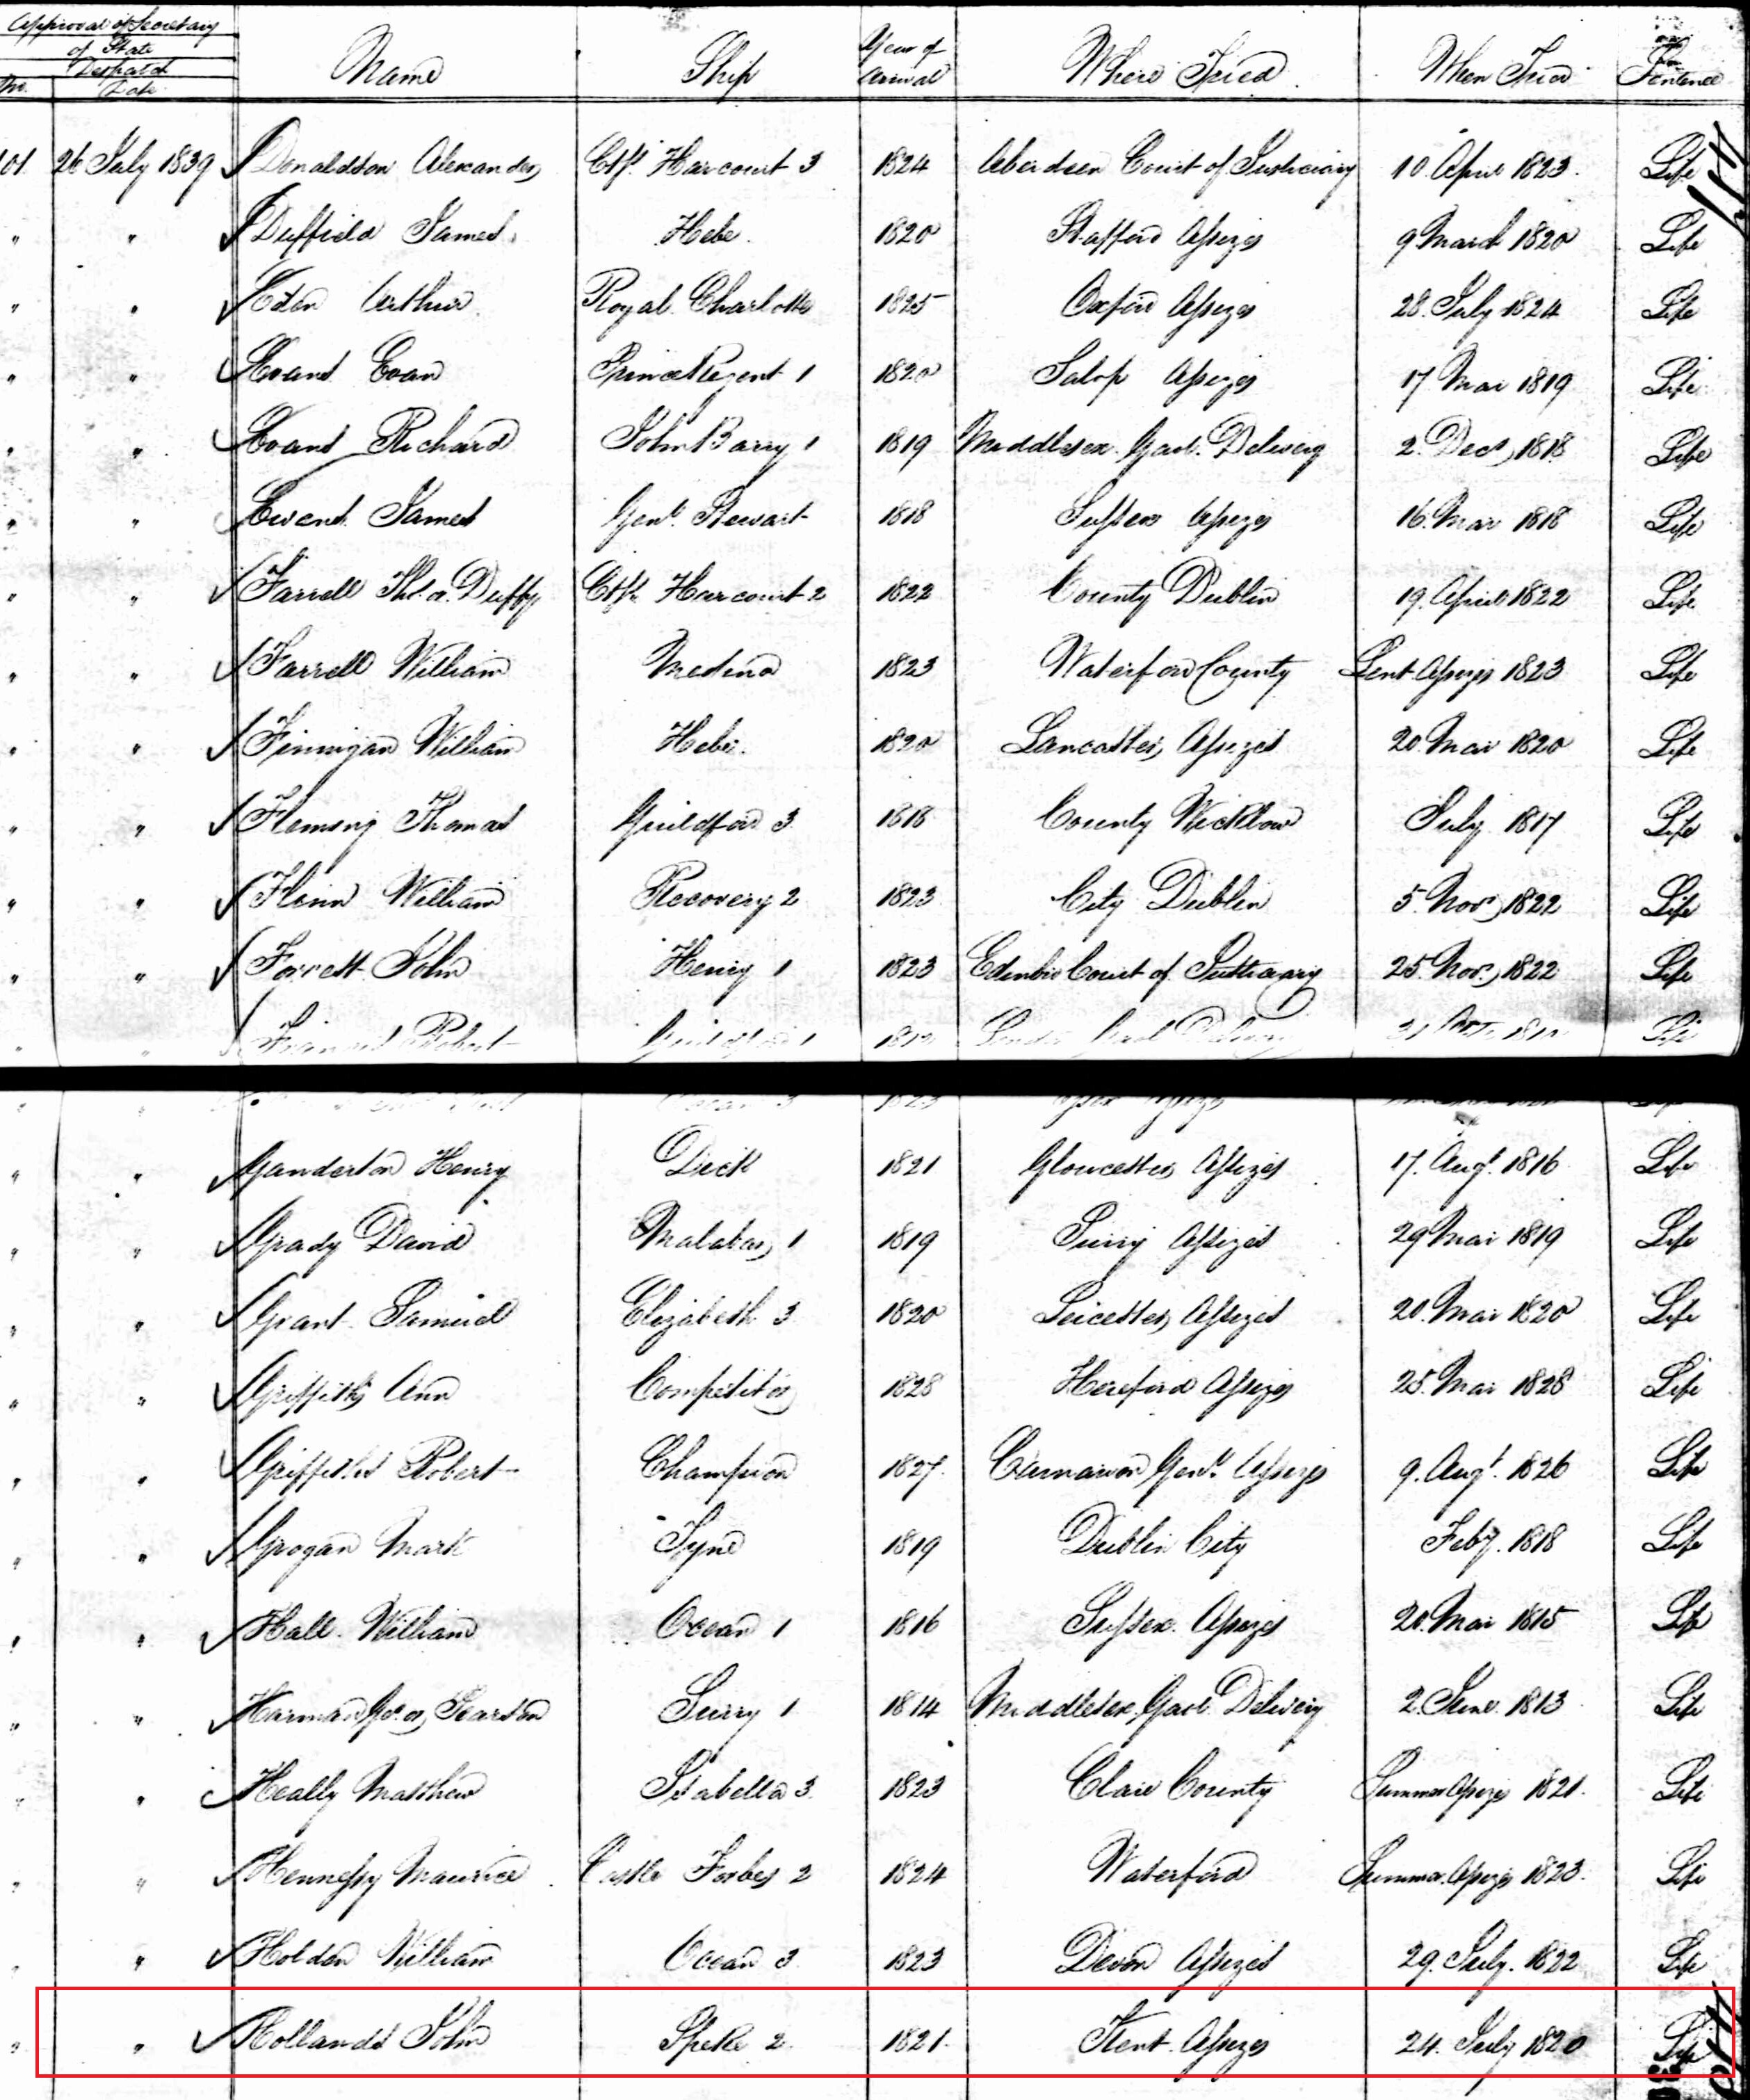 Approval of Secretary
of State
Despatch
No. Date Name Ship Year of Arrival Where Tried When Tried Sentence
101 26 July 1839 Donaldson Alexander Ctss. Harcourt 3 1824 Aberdeen Court of Justiciary 10 April 1823. Life
" " Duffield James Hebe 1820 Stafford Assizes 9 March 1820 Life
" " Eden Arthur Royal Charlotte 1825 Oxford Assizes 28 July 1824 Life
" " Evans Evan Prince Regent 1 1820 Salop Assizes 17 Mar 1819 Life
" " Evans Richard John Barry 1 1819 Middlesex Gaol Delivery 2 Decr. 1818 Life
" " Ewens James Genl. Stewart 1818 Sussex Assizes 16 Mar 1818 Life
" " Farrell Ths. or Duffy Ctss. Harcourt 2 1822 County Dublin 19 April 1822 Life
" " Farrell William Medina 1823 Waterford County Lent Assizes 1823 Life
" " Finnigan William Hebe 1820 Lancaster Assizes 20 Mar 1820 Life
" " Fleming Thomas Guildford 3 1818 County Wicklow July 1817 Life
" " Flinn William Recovery 2 1823 City Dublin 5 Novr. 1822 Life
" " Forrest John Henry 1 1823 Edinbro Court of Justiciary 25 Novr. 1822 Life
" " Francis Robert Guildford 1 1812 Gaol Delivery Life
" " Ganderton Henry Dick 1821 Gloucester Assizes 17 Augt. 1816 Life
" " Grady David Malabar 1 1819 Surry Assizes 29 Mar 1819 Life
" " Grant Samuel Elizabeth 3 1820 Leicester Assizes 20 Mar 1820 Life
" " Griffiths Ann Competitor 1828 Hereford Assizes 25 Mar 1828 Life
" " Griffiths Robert Champion 1827 Carnarvon Genl. Assizes 9. Augt. 1826 Life
" " Grogan Mark Tyne 1819 Dublin City Feby. 1818 Life
" " Hall William Ocean 1 1816 Sussex Assizes 20 Mar 1815 Life
" " Harman Geo. or Pearson Surry 1 1814 Middlesex Gaol Delivery 2 June 1813 Life
" " Heally Matthew Isabella 3 1823 Clare County Summer Assizes 1821. Life
" " Hennessy Maurice Castle Forbes 2 1824 Waterford Summer Assizes 1823. Life
" " Holden William Ocean 3 1823 Devon Assizes 29. July. 1822 Life
" " Hollands John Speke 2 1821 Kent Assizes 24. July 1820 Life